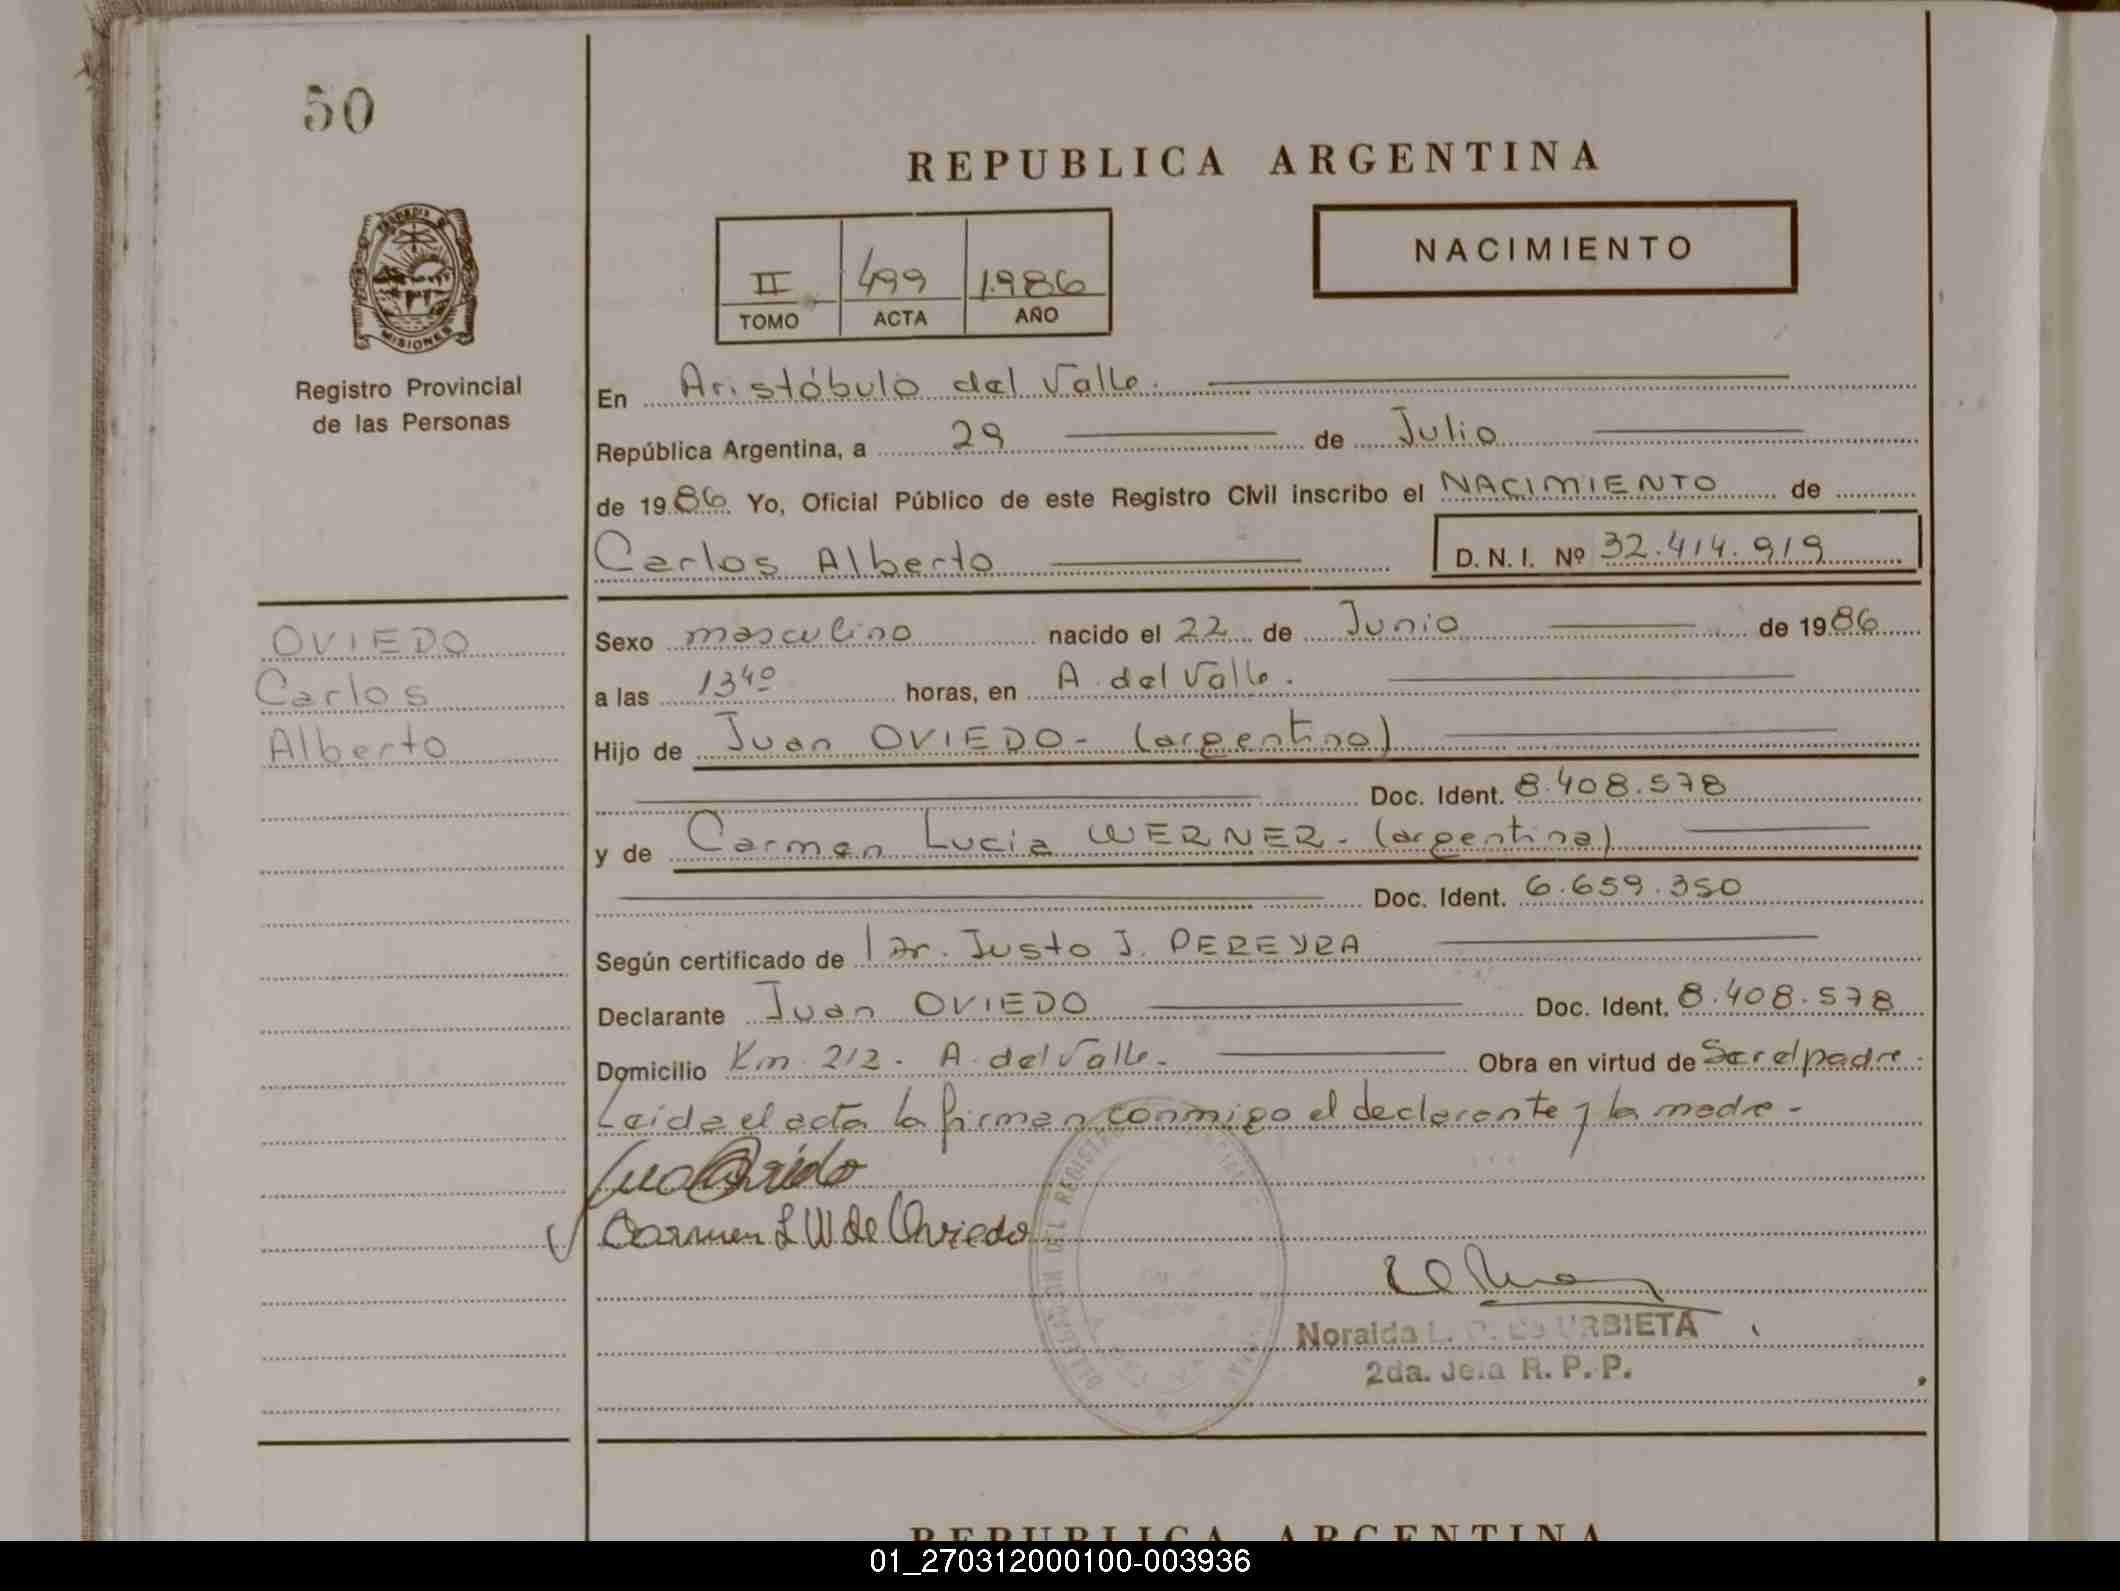 50
REPUBLICA ARGENTINA
NACIMIENTO
II 499 1.986
TOMO ACTA AÑO
MISIONES
Registro Provincial
de las Personas
En Aristóbulo del Valle.
República Argentina, a 29 de Julio
de 1986 Yo, Oficial Público de este Registro Civil inscribo el NACIMIENTO de
Carlos Alberto D. N. I. Nº 32.414.919
OVIEDO
Carlos
Alberto
Sexo masculino nacido el 22 de Junio de 1986
a las 13⁴⁰ horas, en A. del Valle.
Hijo de Juan OVIEDO - (argentino)
Doc. Ident. 8.408.578
y de Carmen Lucia WERNER - (argentina)
Doc. Ident. 6.659.350
Según certificado de Dr. Justo J. PEREYRA
Declarante Juan OVIEDO Doc. Ident. 8.408.578
Domicilio Km 212 - A. del Valle - Obra en virtud de Ser el padre.
Leida el acta la firman conmigo el declarante y la madre -
Juan Oviedo
Carmen L W de Oviedo
DELEGACION DEL REGISTRO
Noraida L. de URBIETA
2da. Jefa R. P. P.
REPUBLICA ARGENTINA
01_270312000100-003936